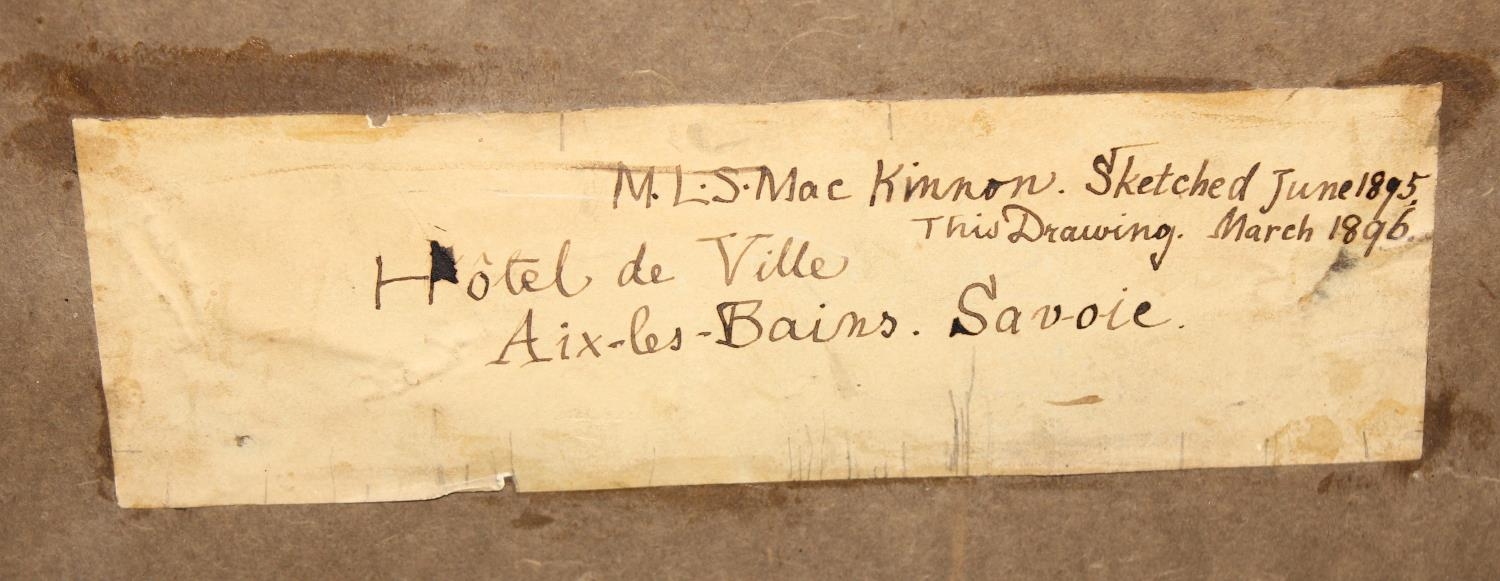 M. L. S. Mac Kinnon. Sketched June 1895.
This Drawing. March 1896.
Hôtel de Ville
Aix-les-Bains. Savoie.